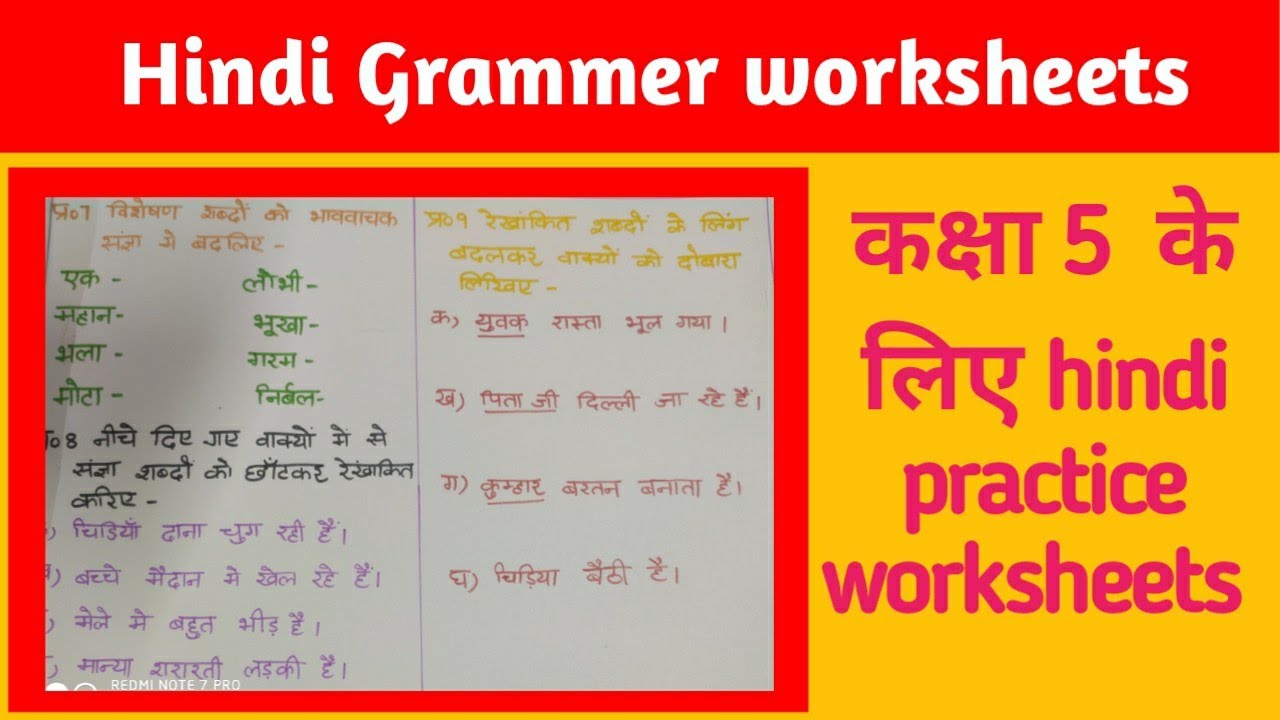 Hindi Grammer worksheets
प्र०7 विशेषण शब्दों को भाववाचक
संज्ञा मे बदलिए -
एक - लोभी -
महान - भूखा -
भला - गरम -
मोटा - निर्बल-
प्र०8 नीचे दिए गए वाक्यों में से
संज्ञा शब्दों को छाँटकर रेखांकित
करिए -
) चिडियाँ दाना चुग रही हैं।
ख) बच्चे मैदान मे खेल रहे हैं।
) मेले मे बहुत भीड़ है।
) मान्या शरारती लड़की है।
REDMI NOTE 7 PRO
प्र०9 रेखांकित शब्दों के लिंग
बदलकर वाक्यों को दोबारा
लिखिए -
क) युवक रास्ता भूल गया।
ख) पिता जी दिल्ली जा रहे हैं।
ग) कुम्हार बरतन बनाता है।
घ) चिड़िया बैठी है।
कक्षा 5 के
लिए hindi
practice
worksheets